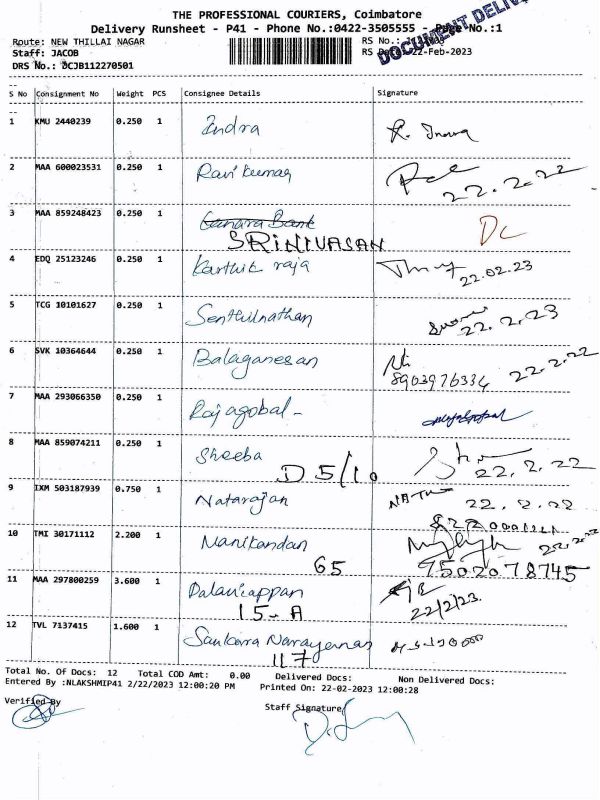 THE PROFESSIONAL COURIERS, Coimbatore
Delivery Runsheet - P41 - Phone No.:0422-3505555 - Page No.:1
DOCUMENT
Route: NEW THILLAI NAGAR RS No.:
Staff: JACOB RS Date: 22-Feb-2023
DRS No.: DCJB112270501
S No Consignment No Weight PCS Consignee Details Signature
1 KMU 2440239 0.250 1 Indra
2 MAA 600023531 0.250 1 Ravi kumar 22.2.22
3 MAA 859248423 0.250 1 Canara Bank DC
SRINIVASAN
4 EDQ 25123246 0.250 1 Karthik raja 22.02.23
5 TCG 10101627 0.250 1 Senthilnathan 22.2.23
6 SVK 10364644 0.250 1 Balaganesan 22.2.22
8903976334
7 MAA 293066350 0.250 1 Rajagobal-
8 MAA 859074211 0.250 1 Sheeba 22.2.22
D 5/10
9 IXM 503187939 0.750 1 Natarajan 22.2.22
10 TMI 30171112 2.200 1 Manikandan 22.2.22
65 7502078745
11 MAA 297800259 3.600 1 Palaniappan
15-A 22/2/23
12 TVL 7137415 1.600 1 Sankara Narayanan
117
Total No. Of Docs: 12 Total COD Amt: 0.00 Delivered Docs: Non Delivered Docs:
Entered By :NLAKSHMIP41 2/22/2023 12:00:20 PM Printed On: 22-02-2023 12:00:28
Verified By Staff Signature